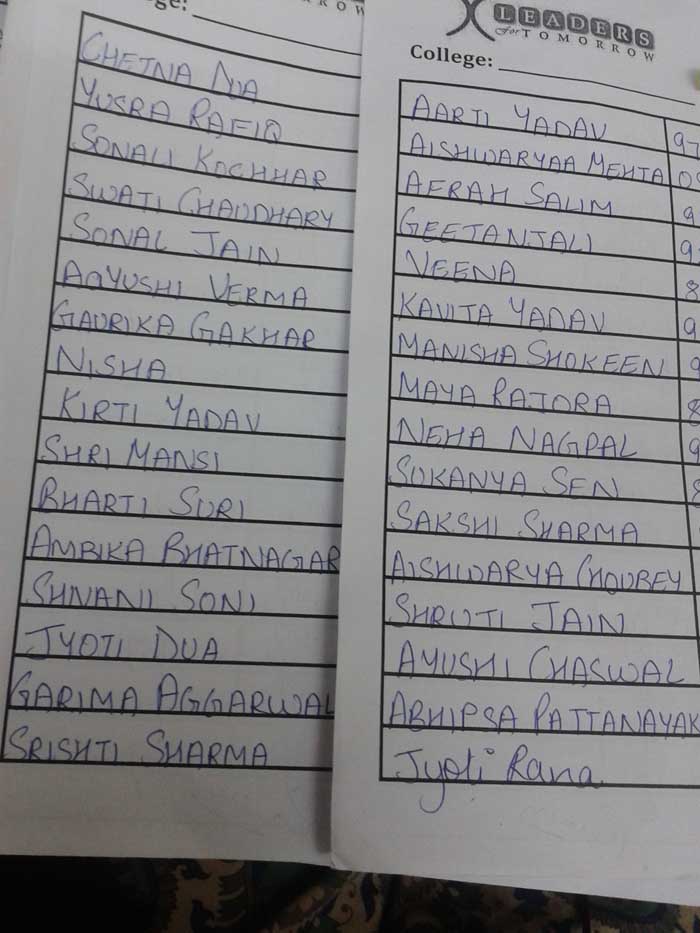 ge:
ROW
CHETNA DUA
YUSRA RAFIQ
SONALI KOCHHAR
SWATI CHAUDHARY
SONAL JAIN
AAYUSHI VERMA
GAURIKA GAKHAR
NISHA
KIRTI YADAV
SHRI MANSI
BHARTI SURI
AMBIKA BHATNAGAR
SHIVANI SONI
JYOTI DUA
GARIMA AGGARWAL
SRISHTI SHARMA
LEADERS
for TOMORROW
College:
AARTI YADAV 97
AISHWARYAA MEHTA 09
AFRAH SALIM 9
GEETANJALI 9
VEENA 8
KAVITA YADAV 9
MANISHA SHOKEEN 9
MAYA RAJORA 8
NEHA NAGPAL 9
SUKANYA SEN 8
SAKSHI SHARMA
AISHWARYA CHOUBEY
SHRUTI JAIN
AYUSHI CHASWAL
ABHIPSA PATTANAYAK
Jyoti Rana